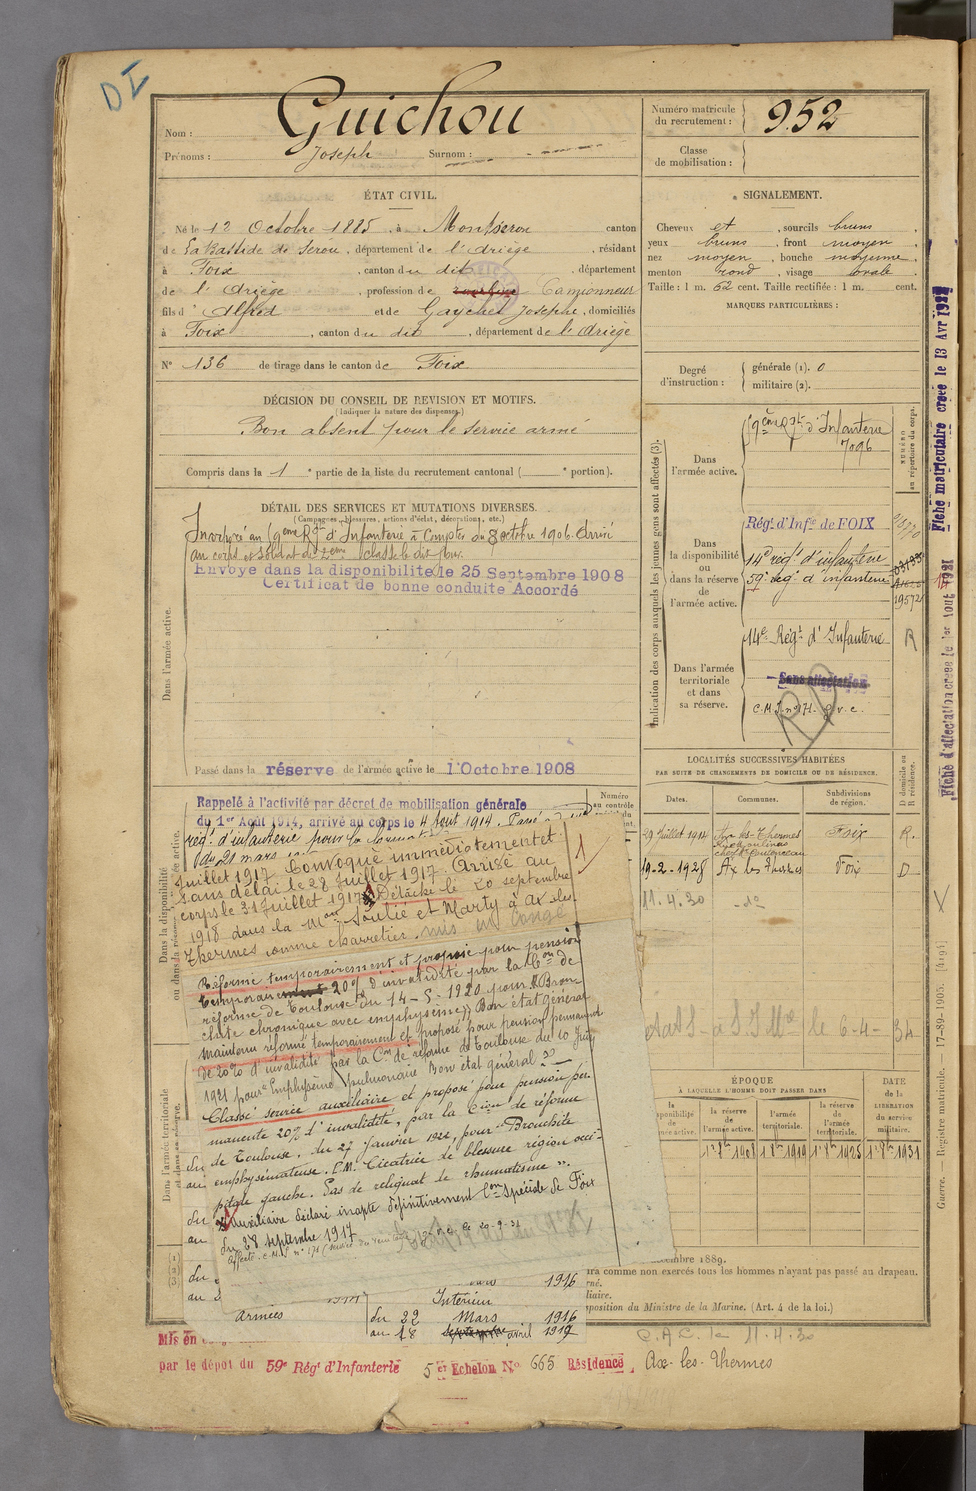 DI
Nom : Guichou
Prénoms : Joseph Surnom :
Numéro matricule du recrutement : 952
Classe de mobilisation :
ÉTAT CIVIL.
Né le 12 Octobre 1885, à Montseron canton
de La Bastide de Serou, département de l'Ariège, résidant
à Foix, canton du dit, département
de l'Ariège, profession de Camionneur
fils d'Alfred et de Gaychet Josephe, domiciliés
à Foix, canton du dit, département de l'Ariège
N° 136 de tirage dans le canton de Foix
SIGNALEMENT.
Cheveux et, sourcils bruns,
yeux bruns, front moyen,
nez moyen, bouche moyenne,
menton rond, visage ovale.
Taille : 1 m. 62 cent. Taille rectifiée : 1 m. cent.
MARQUES PARTICULIÈRES :
Degré d'instruction : générale (1). 0
militaire (2).
DÉCISION DU CONSEIL DE REVISION ET MOTIFS.
(Indiquer la nature des dispenses.)
Bon absent pour le service armé
Compris dans la 1 e partie de la liste du recrutement cantonal ( e portion).
DÉTAIL DES SERVICES ET MUTATIONS DIVERSES.
(Campagnes, blessures, actions d'éclat, décorations, etc.)
Incorporé au 9ème Rgt d'Infanterie à Compter du 8 octobre 1906. Arrivé
au corps et soldat de 2ème classe le dit jour.
Envoyé dans la disponibilité le 25 Septembre 1908
Certificat de bonne conduite Accordé
Dans l'armée active.
Passé dans la réserve de l'armée active le 1 Octobre 1908
Indication des corps auxquels les jeunes gens sont affectés (3).
NUMÉRO au répertoire du corps.
Dans l'armée active.
9ème Rgt d'Infanterie
7096
Dans la disponibilité ou dans la réserve de l'armée active.
Régt d'Infie de FOIX
14e régt d'infanterie
59e régt d'infanterie
Dans l'armée territoriale et dans sa réserve.
14e Régt d'Infanterie
R
Sans affectation
C.M.I. n° 171. g.v.c.
LOCALITÉS SUCCESSIVES HABITÉES
PAR SUITE DE CHANGEMENTS DE DOMICILE OU DE RÉSIDENCE.
Dates. Communes. Subdivisions de région. D domicile ou R résidence.
29 Juillet 1914 Ax les Thermes Foix R.
19-2-1928 Ax les Thermes Foix D
11.4.30 -d°-
Rappelé à l'activité par décret de mobilisation générale
du 1er Août 1914, arrivé au corps le 4 Aout 1914. Passé
régt d'infanterie pour la
du 21 mars
Numéro au contrôle
Juillet 1917. Convoqué immédiatement et
sans délai le 28 Juillet 1917. Arrivé au
corps le 31 Juillet 1917. Détaché le 20 septembre
1918 dans la Mon Soulié et Marty à Ax les
Thermes comme charretier. mis en Congé
Réformé temporairement et proposé pour pension
temporaire 20% d'invalidité par la Con de
réforme de Toulouse du 14-5-1920 pour "Bron
chite chronique avec emphysème" Bon état général
Maintenu réformé temporairement et proposé pour pension permanente
de 20% d'invalidité par la Con de réforme de Toulouse du 10 Juin
1921 pour Emphysème pulmonaire Bon état général
Classé service auxiliaire et proposé pour pension per
manente 20% d'invalidité, par la Con de réforme
de Toulouse, du 27 Janvier 1922, pour "Bronchite
emphysémateuse. P.M. Cicatrice de blessure région occi-
pitale gauche. Pas de reliquat de rhumatisme".
Auxiliaire déclaré inapte définitivement Con spéciale de Foix
du 28 septembre 1917
Affecté C.M.I. n° 171
Dans l'armée territoriale et dans sa réserve.
à S.I.Mre le 6-4-34
ÉPOQUE
À LAQUELLE L'HOMME DOIT PASSER DANS
la disponibilité de l'armée active. la réserve de l'armée active. l'armée territoriale. la réserve de l'armée territoriale.
DATE de la LIBÉRATION du service militaire.
1er 8bre 1908 1er 8bre 1919 1er 8bre 1925 1er 8bre 1931
décembre 1889.
comme non exercés tous les hommes n'ayant pas passé au drapeau.
disposition du Ministre de la Marine. (Art. 4 de la loi.)
1916
Intérieur
armées du 22 Mars 1916
au 18 avril 1919
Mis en
par le dépot du 59e Régt d'Infanterie 5 er Echelon No 665 Résidence Ax-les-Thermes
C.A.C. le 11.4.30
Fiche matriculaire créée le 13 Avr 1921
Fiche d'affectation créée le 1er Aout 1921
Guerre. — Registre matricule. — 17-89-1905.